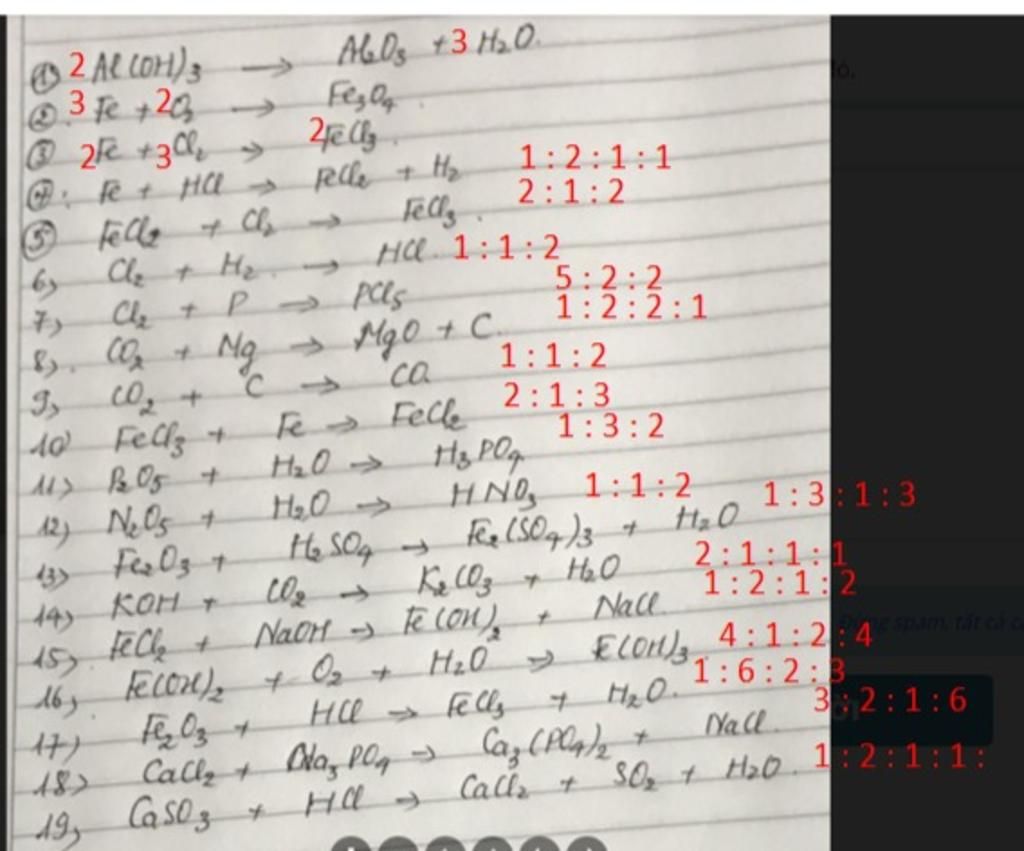 ① 2 Al(OH)3 → Al2O3 + 3 H2O.
② 3 Fe + 2O2 → Fe3O4.
③ 2Fe + 3Cl2 → 2FeCl3.
④: Fe + HCl → FeCl2 + H2 1 : 2 : 1 : 1
⑤ FeCl2 + Cl2 → FeCl3. 2 : 1 : 2
6, Cl2 + H2. → HCl. 1 : 1 : 2
7, Cl2 + P → PCl5 5 : 2 : 2
8,. CO2 + Mg → MgO + C. 1 : 2 : 2 : 1
9, CO2 + C → CO 1 : 1 : 2
10) FeCl3 + Fe → FeCl2 2 : 1 : 3
11) P2O5 + H2O → H3PO4 1 : 3 : 2
12) N2O5 + H2O → HNO3 1 : 1 : 2
13) Fe2O3 + H2SO4 → Fe2(SO4)3 + H2O 1 : 3 : 1 : 3
14) KOH + CO2 → K2CO3 + H2O 2 : 1 : 1 : 1
15) FeCl2 + NaOH → Fe(OH)2 + NaCl. 1 : 2 : 1 : 2
16) Fe(OH)2 + O2 + H2O → F(OH)3 4 : 1 : 2 : 4
17) Fe2O3 + HCl → FeCl3 + H2O. 1 : 6 : 2 : 3
18) CaCl2 + Na3PO4 → Ca3(PO4)2 + NaCl. 3 : 2 : 1 : 6
19, CaSO3 + HCl → CaCl2 + SO2 + H2O. 1 : 2 : 1 : 1 :
spam, tất cả